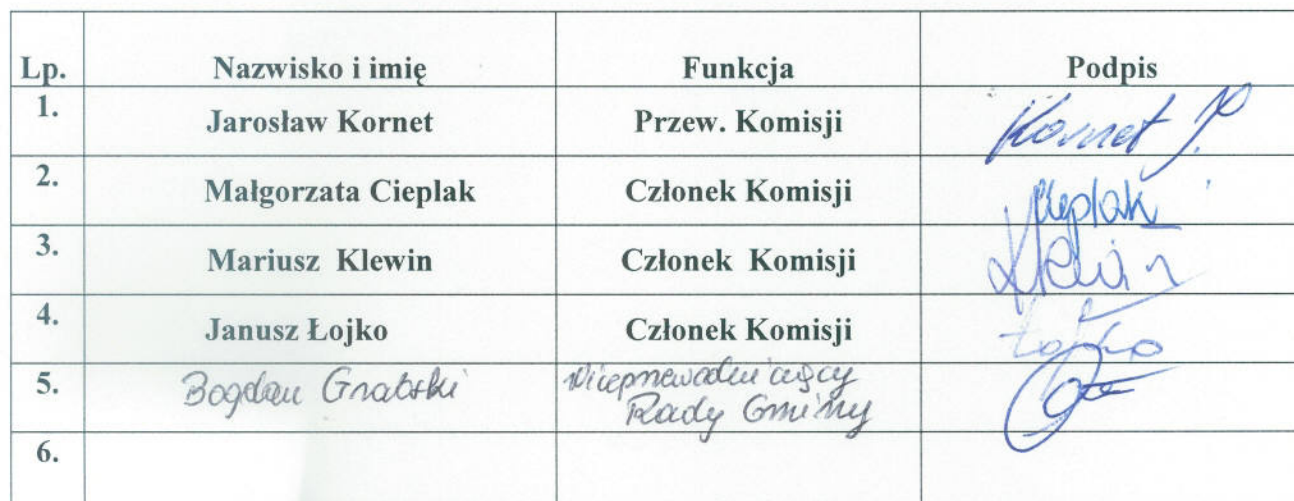 Lp. Nazwisko i imię Funkcja Podpis
1. Jarosław Kornet Przew. Komisji Kornet J.
2. Małgorzata Cieplak Członek Komisji Cieplak
3. Mariusz Klewin Członek Komisji Klewin
4. Janusz Łojko Członek Komisji Łojko
5. Bogdan Grabski Wiceprzewodniczący
Rady Gminy
6.